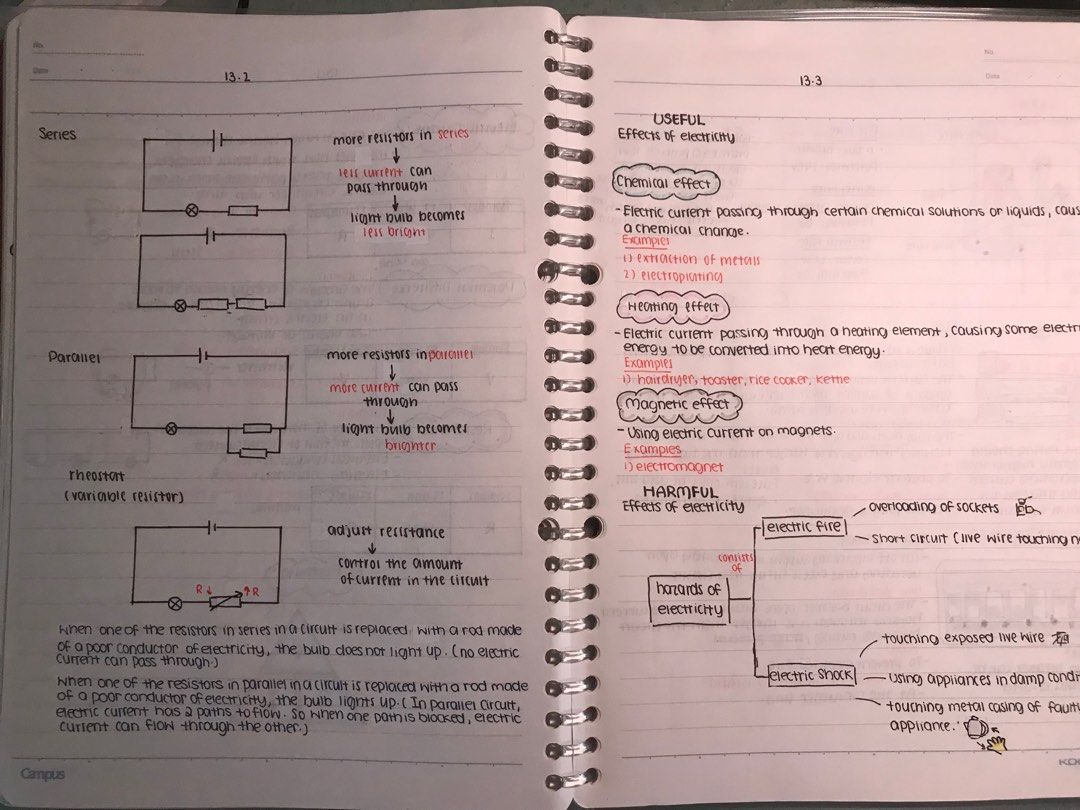 No.
Date
13.2
Series
more resistors in series
less current can
pass through
light bulb becomes
less bright
Parallel
more resistors in parallel
more current can pass
through
light bulb becomes
brighter
rheostat
(variable resistor)
R↓ ↑R
adjust resistance
control the amount
of current in the circuit
When one of the resistors in series in a circuit is replaced with a rod made
of a poor conductor of electricity, the bulb does not light up. (no electric
current can pass through.)
When one of the resistors in parallel in a circuit is replaced with a rod made
of a poor conductor of electricity, the bulb lights up. (In parallel circuit,
electric current has 2 paths to flow. So when one path is blocked, electric
current can flow through the other.)
Campus
No.
Date
13.3
USEFUL
Effects of electricity
Chemical effect
- Electric current passing through certain chemical solutions or liquids, caus
a chemical change.
Examples
1) extraction of metals
2) electroplating
Heating effect
- Electric current passing through a heating element, causing some electr
energy to be converted into heat energy.
Examples
1) hairdryer, toaster, rice cooker, kettle
Magnetic effect
- Using electric current on magnets.
Examples
1) electromagnet
HARMFUL
Effects of electricity
hazards of
electricity
consists
of
electric fire
overloading of sockets
short circuit (live wire touching n
electric shock
touching exposed live wire
using appliances in damp condi
touching metal casing of fault
appliance.
KO